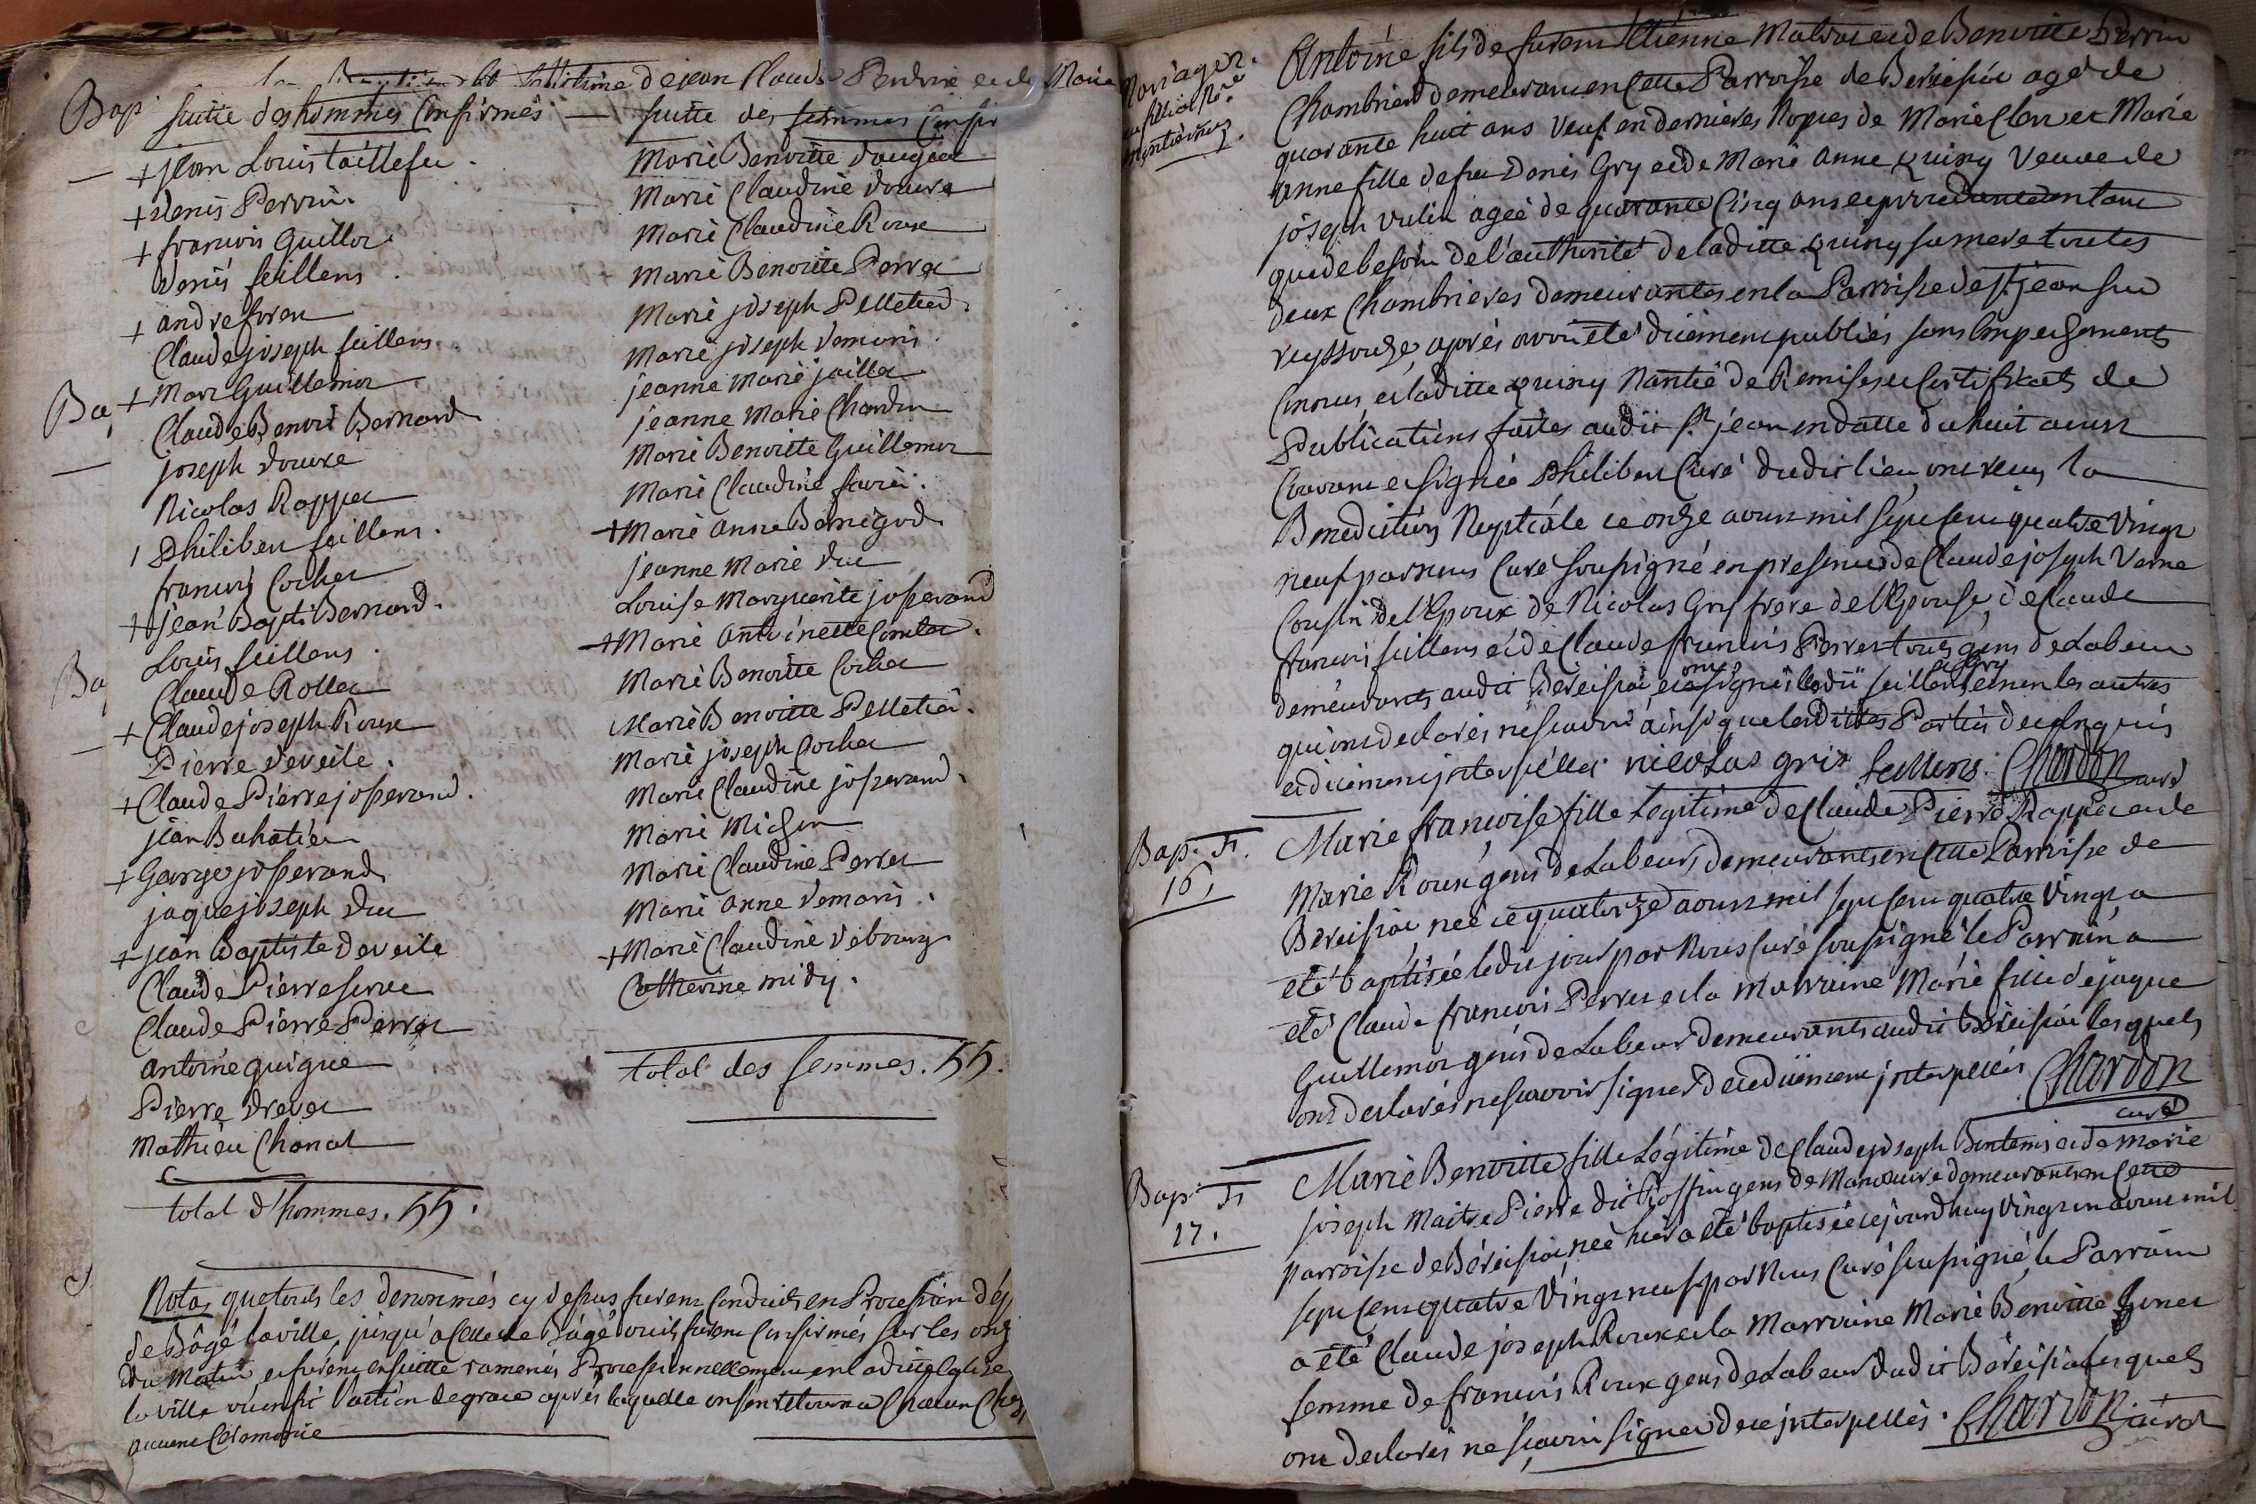 Bap
de jean Claude Marie
suitte des hommes Confirmés — suitte des femmes Confir
+ jean Louis taillefer .
+ denis Perrin .
+ francois Guillot
denis seillens .
+ andre
Claude joseph seillens .
+ Marc Guillemot
Claude Benoit Bernard
joseph douxe
Nicolas Rappet
Philibert seillens .
francois Cochet
+ jean Bapt. Bernard .
Louis seillens .
Claude Rollet
+ Claude joseph Roux
Pierre deveile .
+ Claude Pierre josserand .
jean Buhatier
+ George josserand
jaque joseph duc
+ jean baptiste deveile
Claude Pierre
Claude Pierre Perret
antoine guigue
Pierre drevet
Mathieu Chanal
total d'hommes . 55 .
Marie Benoitte
Marie Claudine
Marie Claudine Roux
Marie Benoitte Perret
Marie joseph Pelletier .
Marie joseph demoris .
jeanne Marie jaillet
jeanne Marie Chardon
Marie Benoitte Guillemot
Marie Claudine
+ Marie anne Benigod
jeanne Marie duc
Louise Marguerite josserand
+ Marie antoinette Comtet .
Marie Benoitte Cochet
Marie Benoitte Pelletier .
Marie joseph Cochet
Marie Claudine josserand .
Marie Michon
Marie Claudine Perret
Marie anne demoris .
+ Marie Claudine debourg
Catherine midy .
total des femmes . 55 .
Nota que touts les denommés cy dessus furent Conduits en Procession
de Bâgé la ville, jusqu'a Celle de Bâgé ou ils furent Confirmés sur les onz
du Matin et furent ensuitte ramenés Processionnellement en laditte Eglise
la ville ou on fit l'action de grace après laquelle on s'en retourna Chacun Chez
aucune Ceremonie
Mariages.
Antoine fils de furent Etienne Matrat et de Benoitte Perrin
Chambrier demeurant en Cette Parroisse de Bereisia agé de
quarante huit ans Veuf en dernieres Noces de Marie Clerc et Marie
anne fille de feu Denis Gry et de Marie anne Quiny Veuve de
joseph Vulin ageé de quarante Cinq ans et procedante en tant
que de besoin de l'authorité de laditte Quiny sa mere toutes
deux Chambrieres demeurantes en la Parroisse de St. jean sur
reyssouze, aprés avoir été duement publiés sans Empechements
Connus et laditte Quiny Nantie de Remises et Certificats de
Publications faites audit St. jean en datte du huit aoust
Courant et signée Philibert Curé dudit lieu, ont reçu la
Benediction Nuptiale ce onze aoust mil sept cent quatre Vingt
neuf par nous Curé soussigné en presence de Claude joseph Verne
Cousin de l'Epoux de Nicolas Gry frere de l'Epouse, de Claude
francois seillens et de Claude francois Perret touts gens de Labeur
demeurants audit Bereisia et ont signés ledit seillens et Gry et non les autres
qui ont declarés ne scavoir ainsi que lesdittes Parties de ce Enquis
et duement interpellés . nicolas gris seillens . Chardon curé
Bap. fs.
16.
Marie françoise fille Légitime de Claude Pierre Rappet et de
Marie Roux gens de Labeur, demeurants en Cette Parroisse de
Bereisia neé ce quatorze aoust mil sept cent quatre Vingt a
eté baptisée ledit jour par Nous Curé soussigné le Parrain a
eté Claude francois Perret et la Marraine Marie fille de jaque
Guillemot gens de Labeur demeurants audit Bereisia lesquels
ont declarés ne scavoir signer de ce duement interpellés Chardon
curé
Bap. fs
17.
Marie Benoitte fille Légitime de Claude joseph et de Marie
joseph Maitre Pierre dit gens de Manoeuvre demeurants en Cette
parroisse de Béreisia, neé hier a eté baptisée cejourd'huy Vingt un aoust mil
sept Cent quatre Vingt neuf par Nous Curé soussigné, le Parrain
a eté Claude joseph Roux et la Marraine Marie Benoitte
femme de francois Roux gens de Labeur dudit Béreisia lesquels
ont declarés ne scavoir signer de ce interpellés . Chardon curé